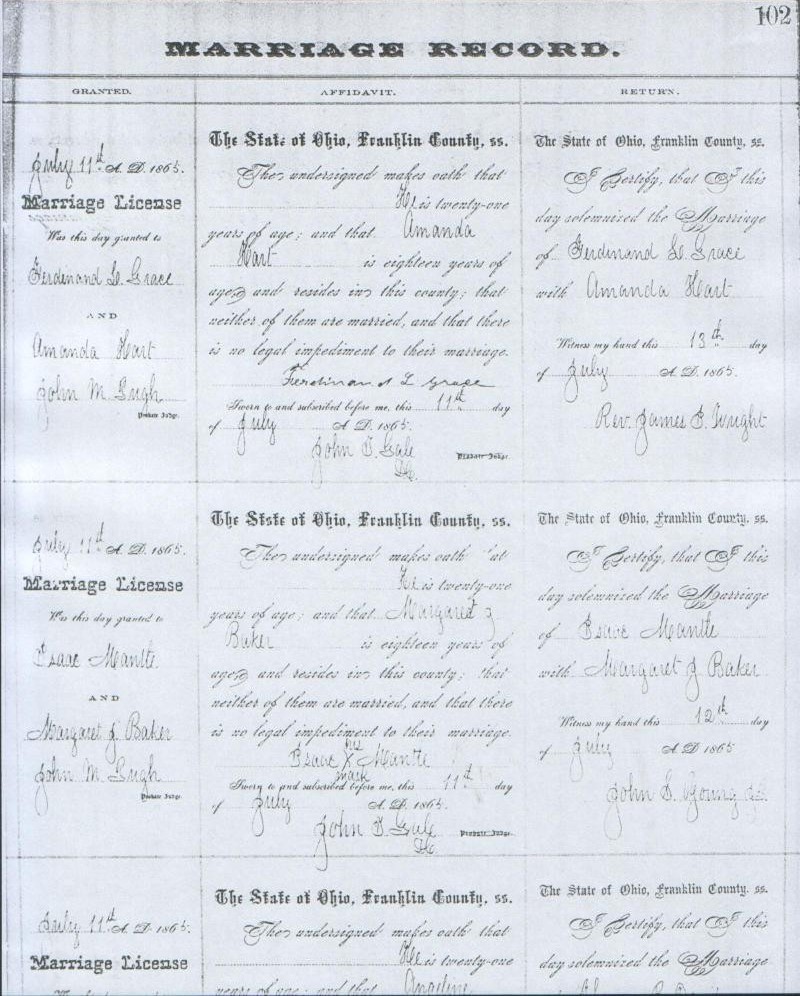 102
MARRIAGE RECORD.
GRANTED.
AFFIDAVIT.
RETURN.
July 11th A. D. 1865.
Marriage License
Was this day granted to
Ferdinand L. Grace
AND
Amanda Hart
John M. Pugh
Probate Judge.
The State of Ohio, Franklin County, ss.
The undersigned makes oath that
He is twenty-one
years of age; and that Amanda
Hart is eighteen years of
age and resides in this county; that
neither of them are married, and that there
is no legal impediment to their marriage.
Ferdinand L Grace
Sworn to and subscribed before me, this 11th day
of July A. D. 1865.
John T. Gale
Probate Judge.
The State of Ohio, Franklin County, ss.
I Certify, that I this
day solemnized the Marriage
of Ferdinand L. Grace
with Amanda Hart
Witness my hand this 13th day
of July A. D. 1865.
Rev. James P. Wright
July 11th A. D. 1865.
Marriage License
Was this day granted to
Isaac Mantle.
AND
Margaret J. Baker
John M. Pugh
Probate Judge.
The State of Ohio, Franklin County, ss.
The undersigned makes oath 'at
He is twenty-one
years of age; and that Margaret J
Baker is eighteen years of
age and resides in this county; that
neither of them are married, and that there
is no legal impediment to their marriage.
Isaac his X mark Mantle
Sworn to and subscribed before me, this 11th day
of July A. D. 1865.
John T. Gale
Probate Judge.
The State of Ohio, Franklin County, ss.
I Certify, that I this
day solemnized the Marriage
of Isaac Mantle
with Margaret J Baker
Witness my hand this 12th day
of July A. D. 1865
John G. Young
July 11th A. D. 1865.
Marriage License
The State of Ohio, Franklin County, ss.
The undersigned makes oath that
He is twenty-one
years of age; and that Angeline
The State of Ohio, Franklin County, ss.
I Certify, that I this
day solemnized the Marriage